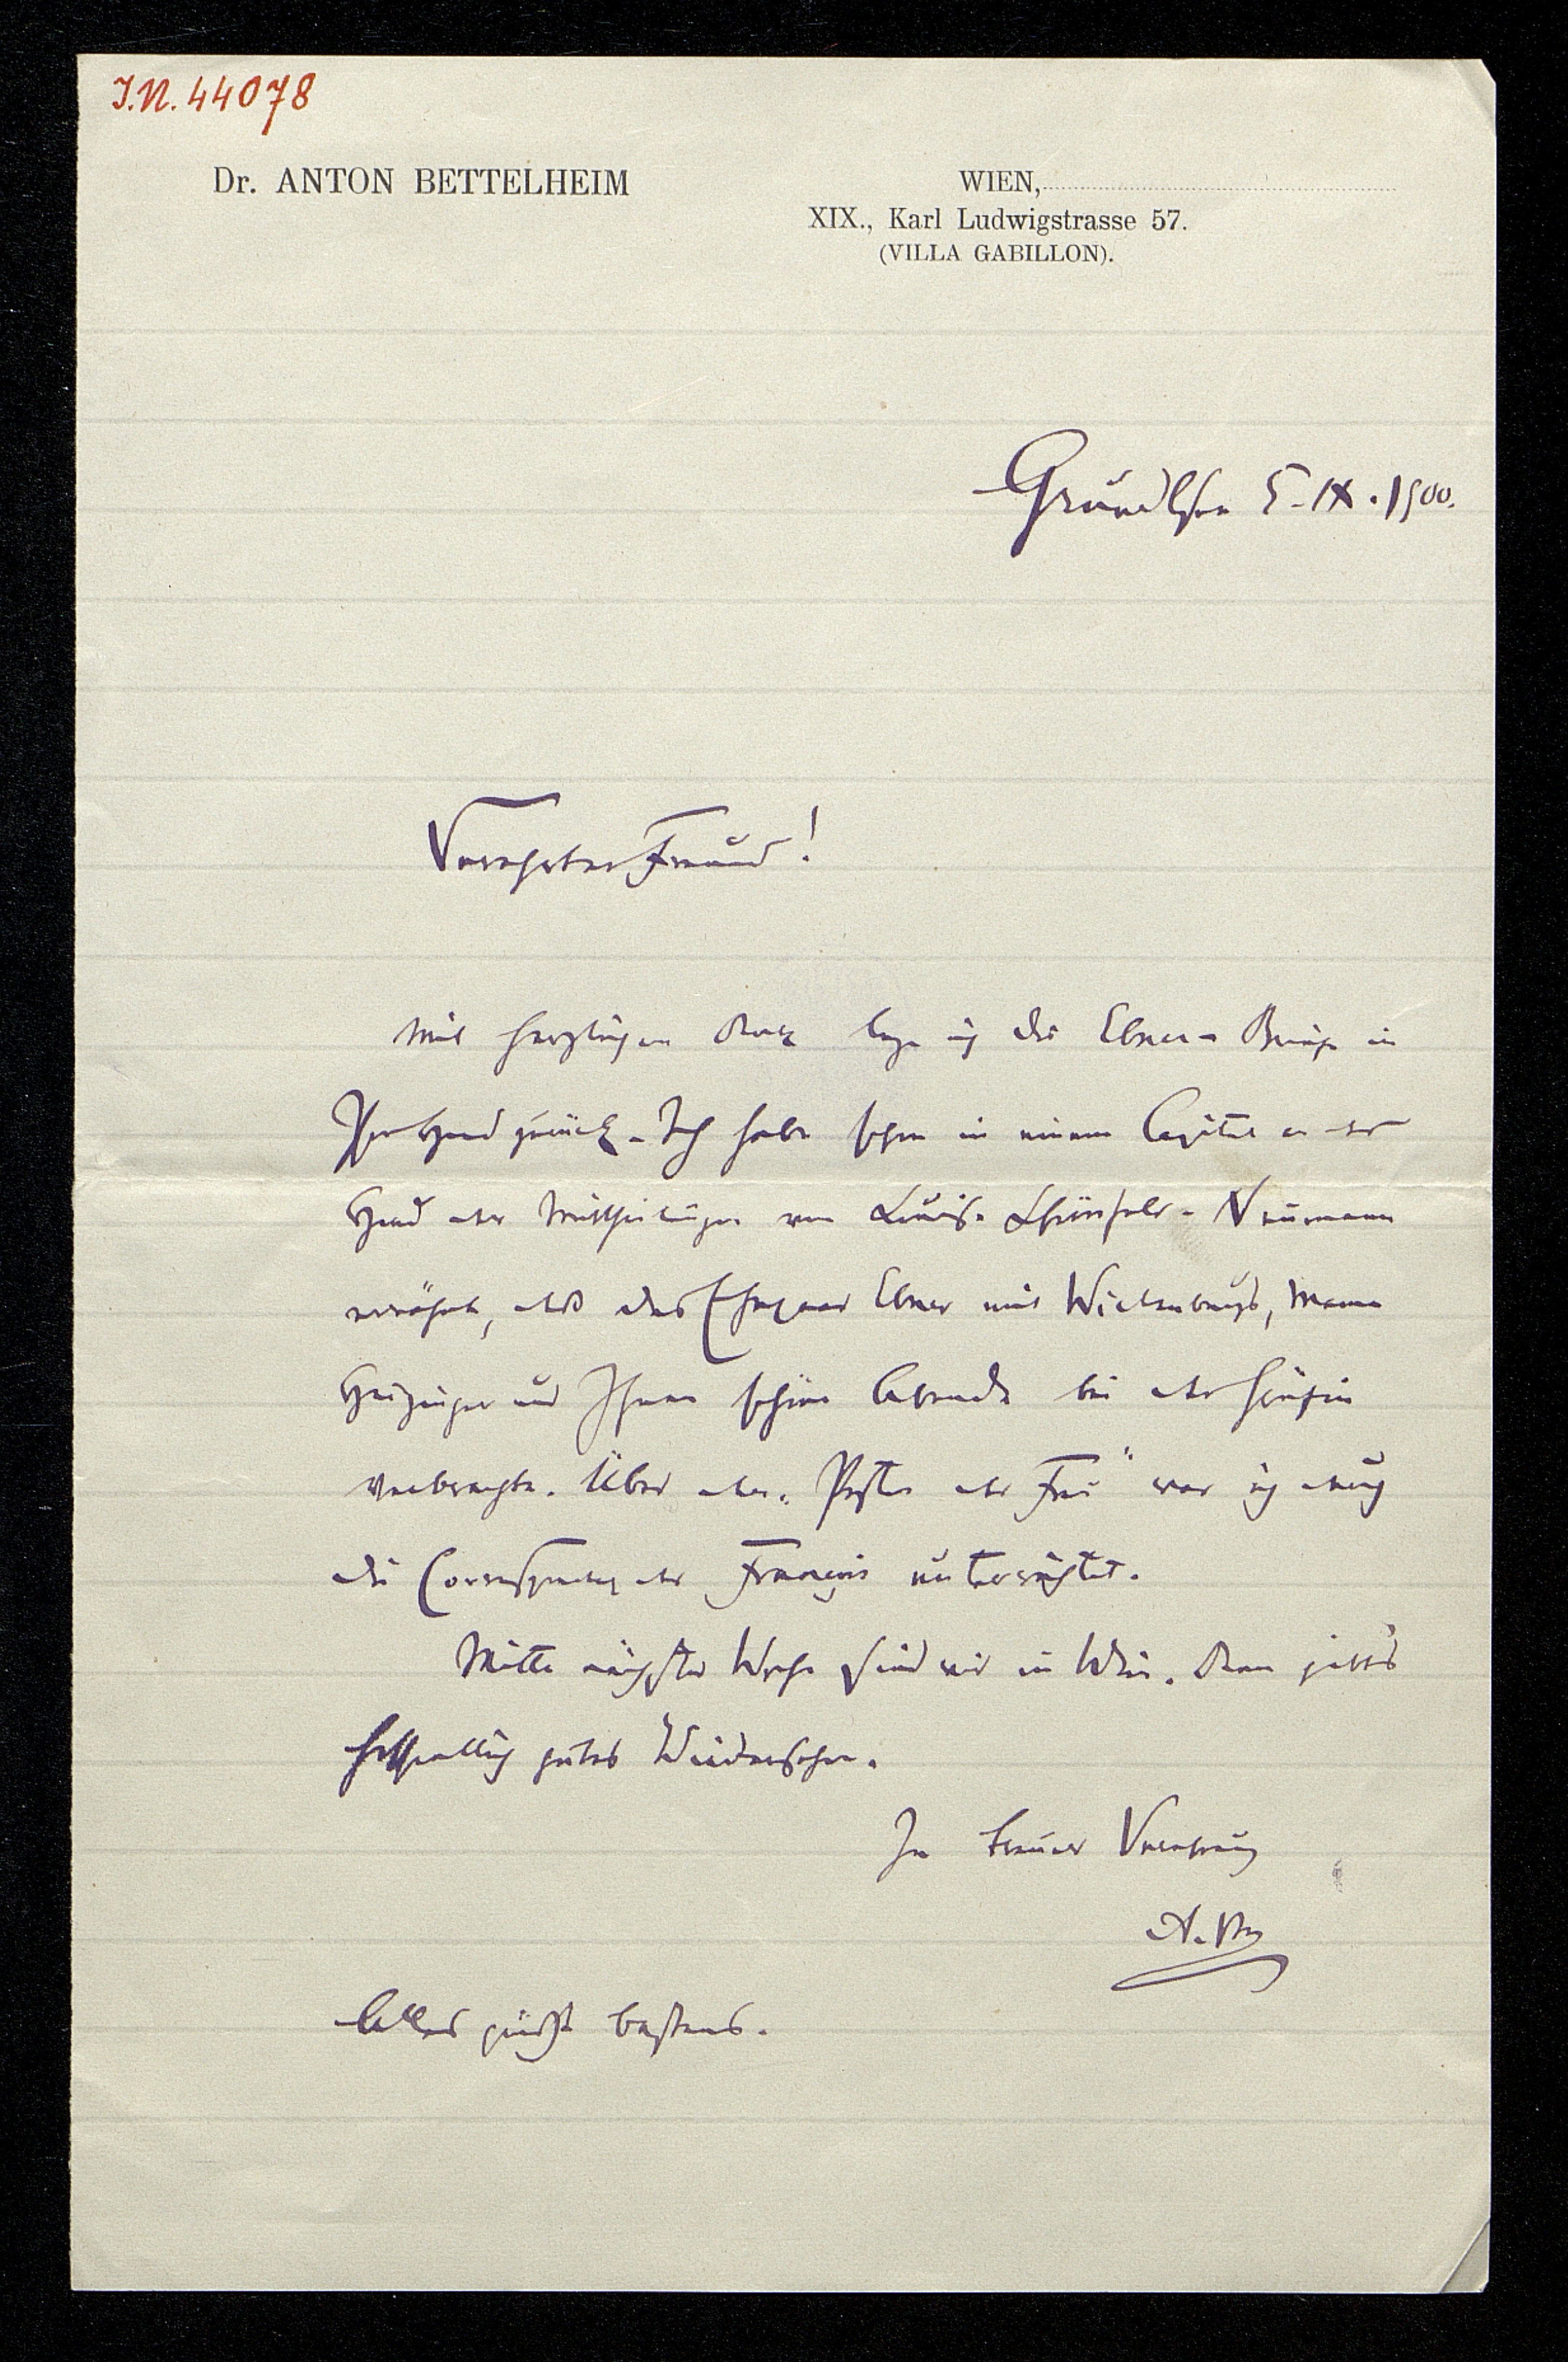 J.N. 44078
Dr. ANTON BETTELHEIM
WIEN,
XIX., Karl Ludwigstrasse 57.
(VILLA GABILLON).
Grundlsee 5.IX.1900.
Verehrter Freund!
Mit herzlichem Dank lege ich die Ebner-Briefe in
Ihre Hand zurück. Ich habe schon in einem Capitel an der
Hand der Mittheilungen von Louise Schönfeld-Neumann
erwähnt, daß das Ehepaar Ebner mit Wickenburgs, Mama
Haizinger und Ihnen schöne Abende bei der Gräfin
verbrachte. Über den „Pater der Frau" war ich durch
die Correspondenz der François unterrichtet.
Mitte nächster Woche sind wir in Wien. Dann gibt's
hoffentlich gutes Wiedersehen.
In treuer Verehrung
A. B.
Alles grüßt bestens.